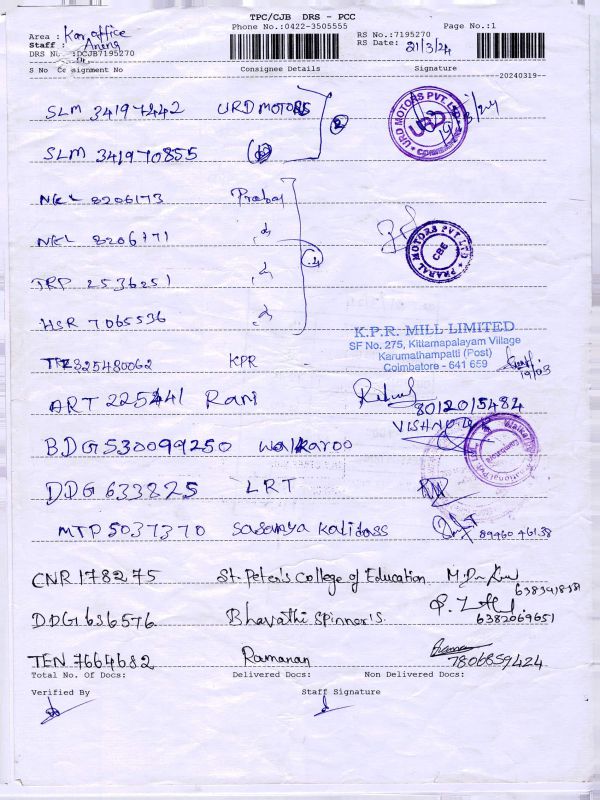 TPC/CJB DRS - PCC
Phone No.:0422-3505555
Page No.:1
Area : Kar, office
RS No.:7195270
Staff :
RS Date: 21/3/24
DRS No :DCJB7195270
S No Consignment No Consignee Details Signature
--20240319--
SLM 34197442 URD MOTORS
SLM 341970855
2
URD MOTORS PVT. LTD
URD
NKL 8206173 Prabal
NKL 8206771 "
TRP 2536251 "
HSR 7065536 "
4
PRABAL MOTORS PVT LTD
CBE
K.P.R. MILL LIMITED
SF No. 275, Kittamapalayam Village
Karumathampatti (Post)
Coimbatore - 641 659
19/03
TPZ 325480062 KPR
ART 225441 Rani
8012015484
BDG 530099250 Walkaroo
VISHNU
DDG 633825 LRT
MTP 5037370 Sasanya Kalidoss
89460 46138
CNR 178275 St. Peter's College of Education
DDG 636576 Bhavathi Spinner's
6382069651
TEN 7664682 Ramanan
7806859424
Total No. Of Docs: Delivered Docs: Non Delivered Docs:
Verified By Staff Signature